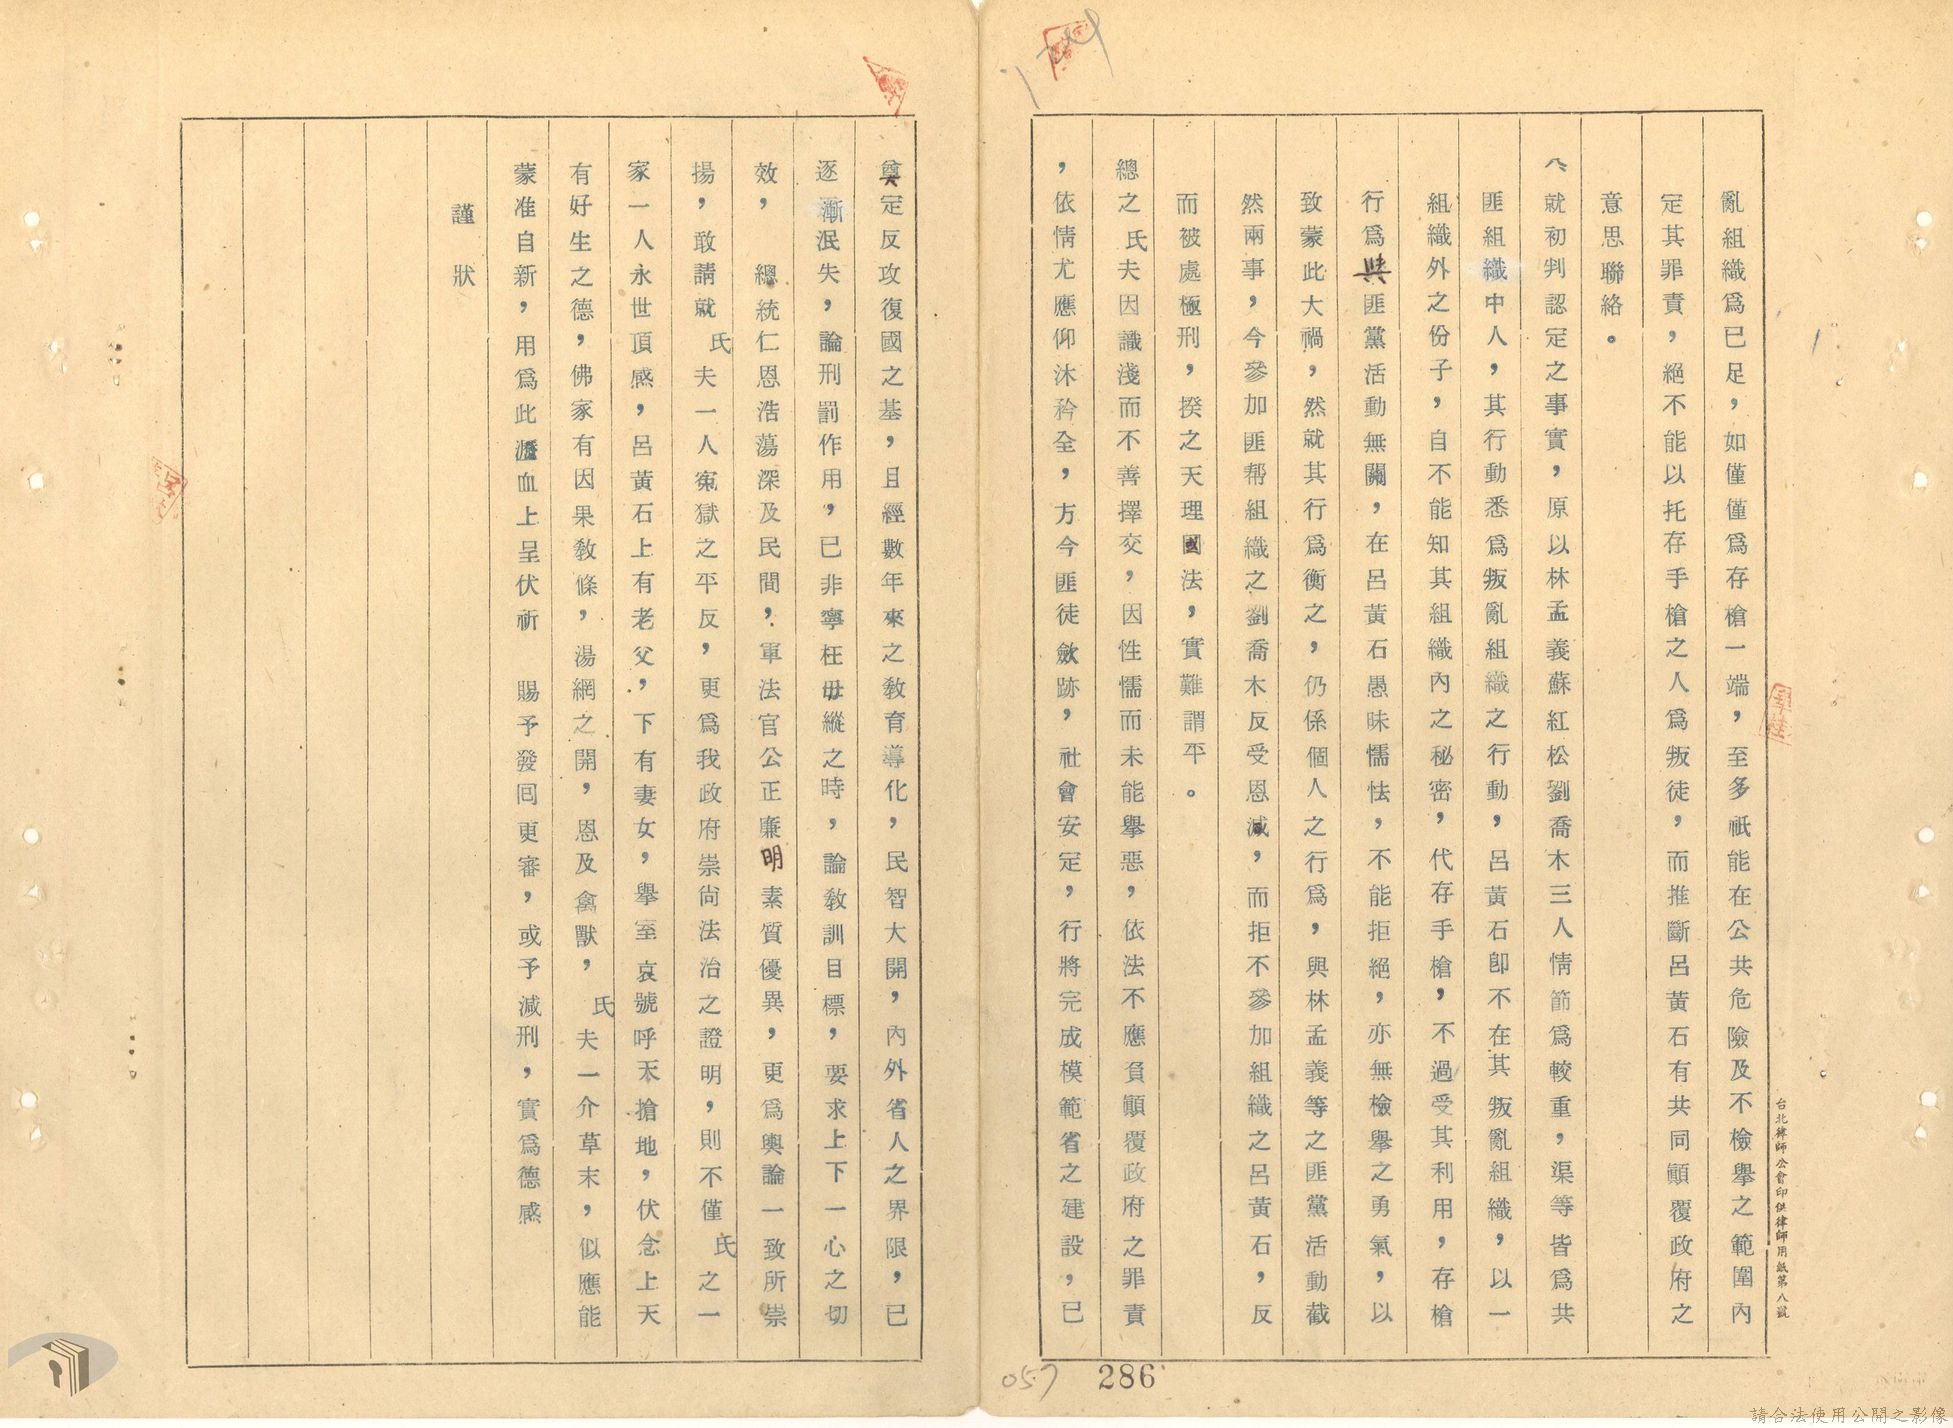 亂組織爲已足，如僅僅爲存槍一端，至多祇能在公共危險及不檢舉之範圍內
定其罪責，絕不能以托存手槍之人爲叛徒，而推斷呂黃石有共同顚覆政府之
意思聯絡。
八、就初判認定之事實，原以林孟義蘇紅松劉喬木三人情節爲較重，渠等皆爲共
匪組織中人，其行動悉爲叛亂組織之行動，呂黃石卽不在其叛亂組織，以一
組織外之份子，自不能知其組織內之秘密，代存手槍，不過受其利用，存槍
行爲與匪黨活動無關，在呂黃石愚昧懦怯，不能拒絕，亦無檢舉之勇氣，以
致蒙此大禍，然就其行爲衡之，仍係個人之行爲，與林孟義等之匪黨活動截
然兩事，今參加匪帮組織之劉喬木反受恩減，而拒不參加組織之呂黃石，反
而被處極刑，揆之天理國法，實難謂平。
總之氏夫因識淺而不善擇交，因性懦而未能舉惡，依法不應負顚覆政府之罪責
，依情尤應仰沐矜全，方今匪徒斂跡，社會安定，行將完成模範省之建設，已
奠定反攻復國之基，且經數年來之敎育導化，民智大開，內外省人之界限，已
逐漸泯失，論刑罰作用，已非寧枉毋縱之時，論敎訓目標，要求上下一心之切
效，　總統仁恩浩蕩深及民間，軍法官公正廉明素質優異，更爲輿論一致所崇
揚，敢請就氏夫一人寃獄之平反，更爲我政府崇尙法治之證明，則不僅氏之一
家一人永世頂感，呂黃石上有老父，下有妻女，舉室哀號呼天搶地，伏念上天
有好生之德，佛家有因果敎條，湯網之開，恩及禽獸，氏夫一介草末，似應能
蒙准自新，用爲此瀝血上呈伏祈　賜予發囘更審，或予減刑，實爲德感
謹狀
台北律師公會印供律師用紙第八號
286
057
請合法使用公開之影像